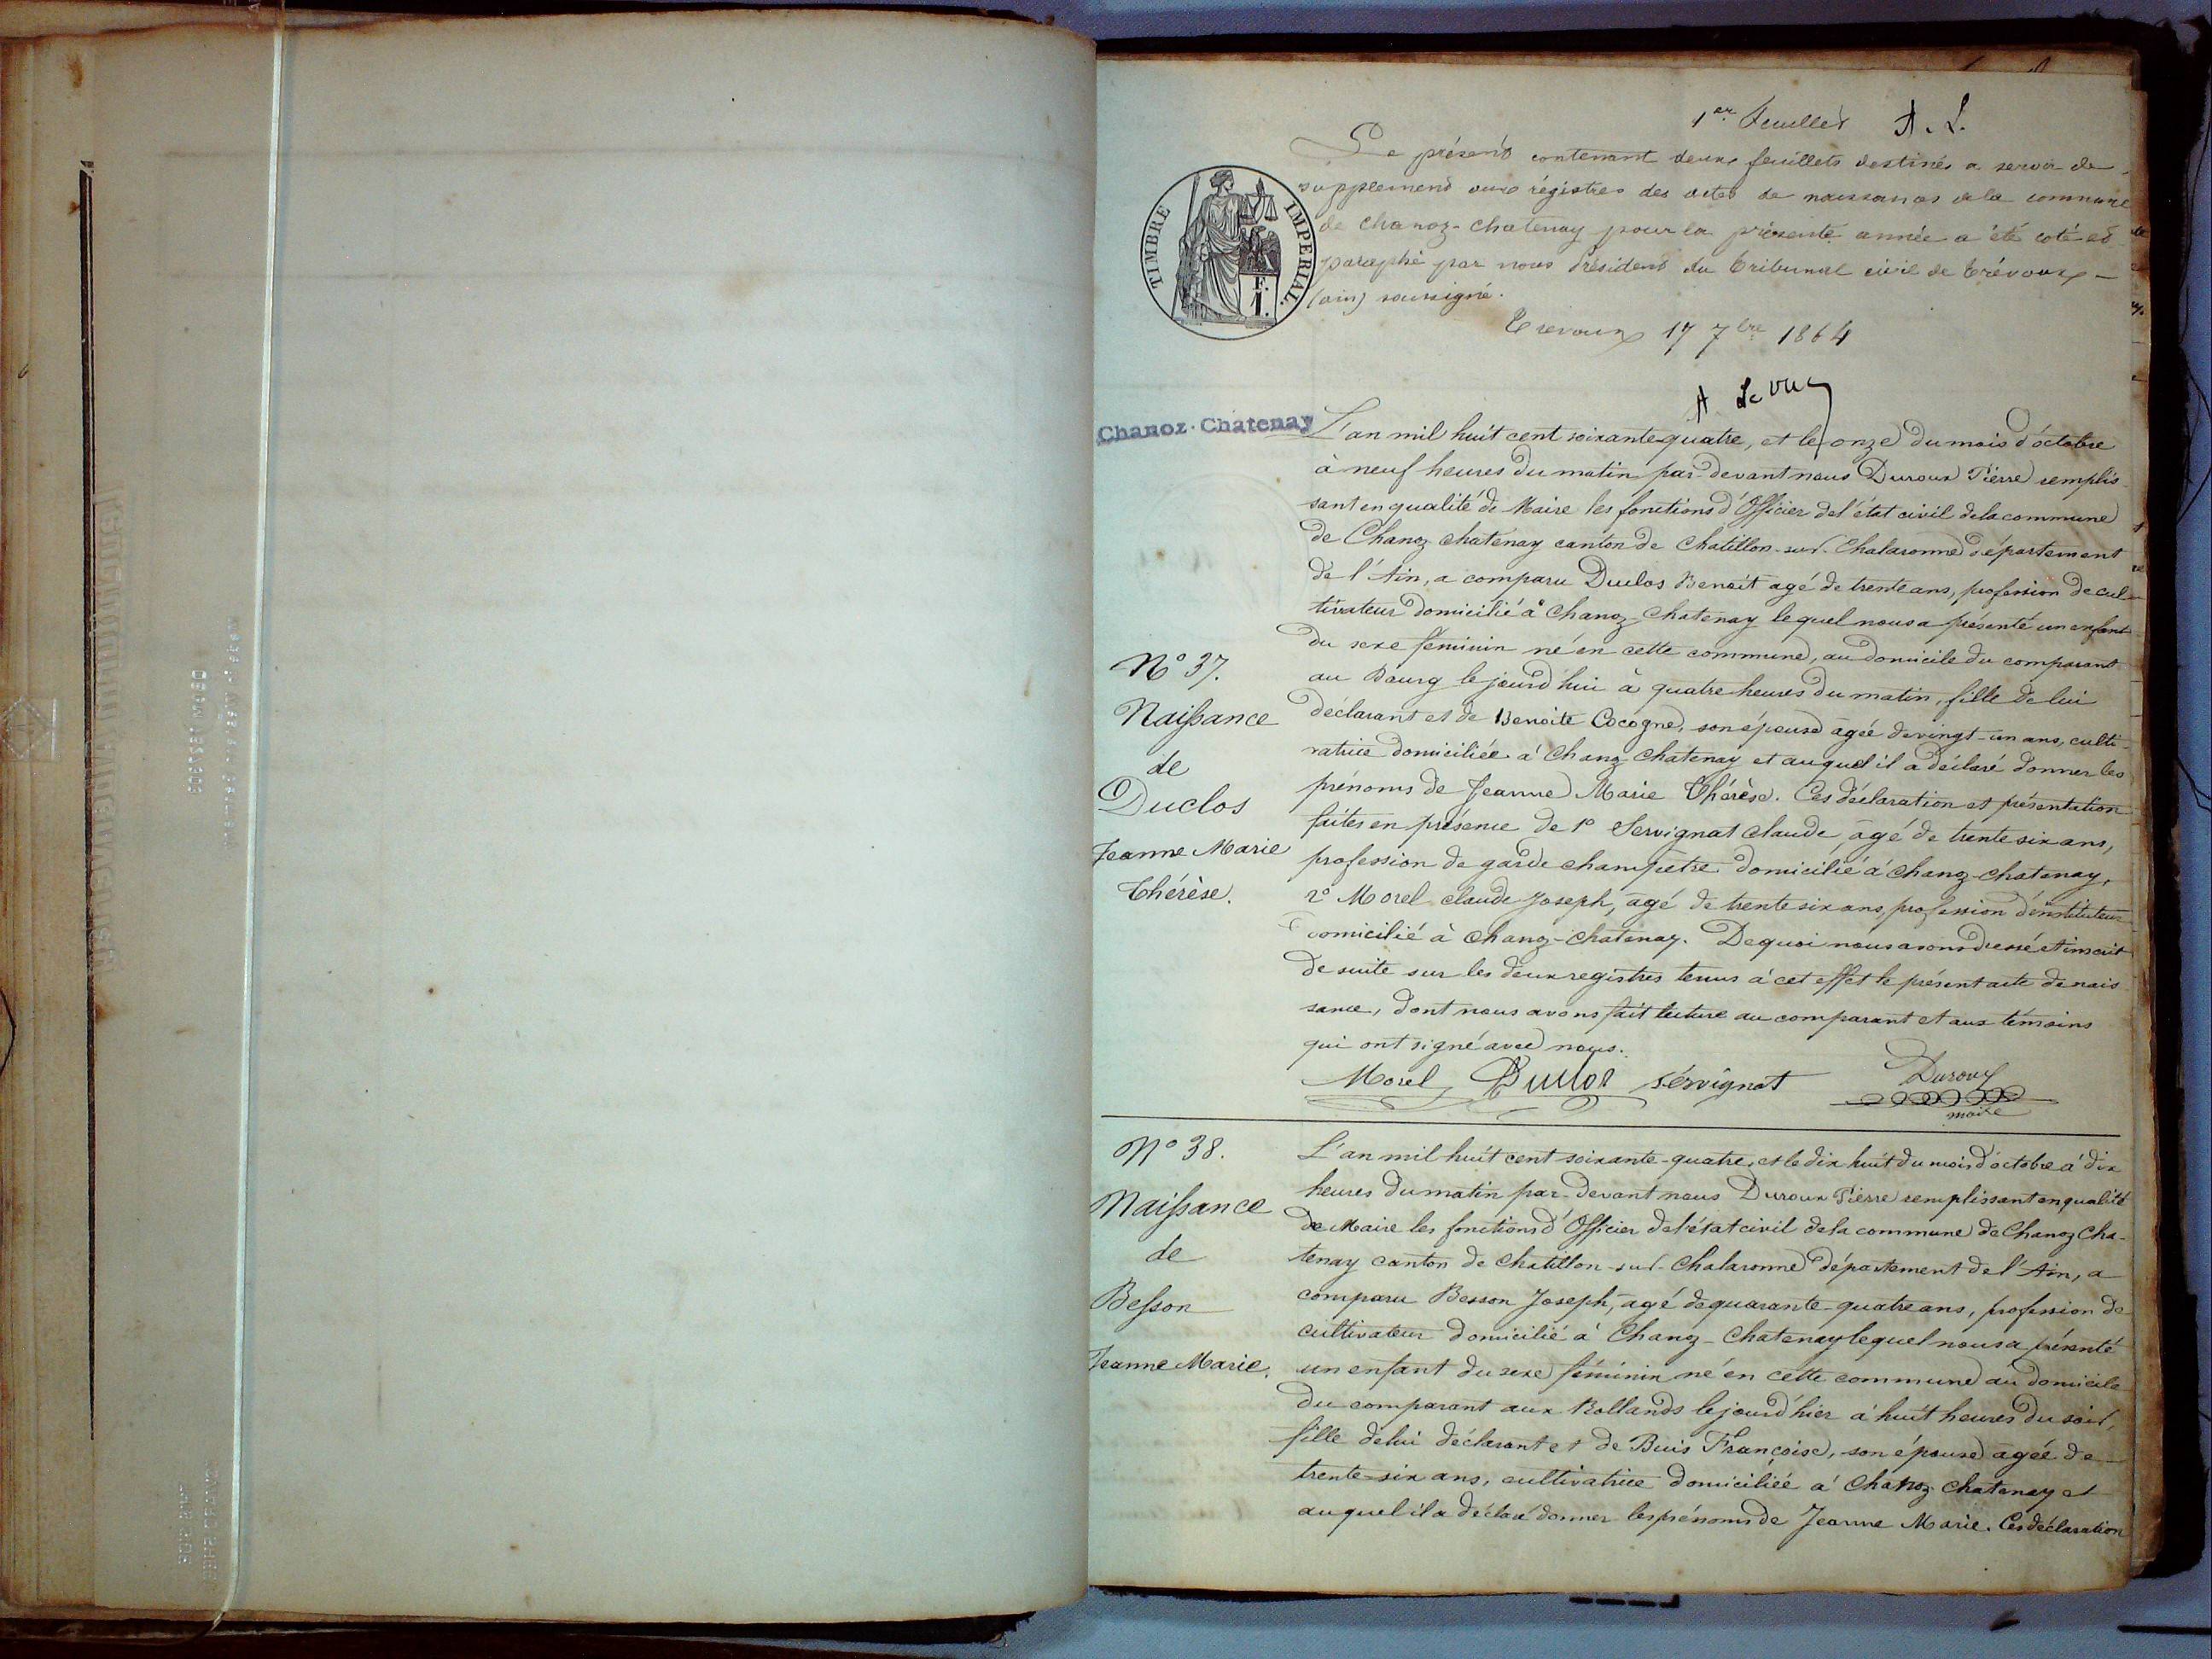 1er feuillet A. L.
Le présent contenant deux feuillets destinés a servir de
supplement aux régistres des actes de naissances de la commune
de Chanoz-Chatenay pour la présente année a été coté et
paraphé par nous Président du tribunal civil de Trévoux
(ain) soussigné.
TIMBRE IMPERIAL.
F.
1.
Trevoux 17 7bre 1864
Chanoz-Chatenay
L'an mil huit cent soixante-quatre, et le onze du mois d'octobre
à neuf heures du matin par-devant nous Duroux Pierre remplis-
sant en qualité de Maire les fonctions d'Officier de l'état civil de la commune
de Chanoz chatenay canton de Chatillon-sur-Chalaronne département
de l'Ain, a comparu Duclos Benoit agé de trente ans, profession de cul-
tivateur domicilié à Chanoz-Chatenay lequel nous a présenté un enfant
du sexe féminin né en cette commune, au domicile du comparant
au Bourg le jourd'hui à quatre heures du matin, fille de lui
déclarant et de Benoite Cocogne, son épouse agée de vingt-un ans, culti-
vatrice domiciliée à Chanoz Chatenay et auquel il a déclaré donner les
prénoms de Jeanne Marie Thérèse. Ces déclaration et présentation
faites en présence de 1° Servignat Claude, âgé de trente six ans,
profession de garde champêtre domicilié à Chanoz-Chatenay,
2° Morel Claude Joseph, agé de trente six ans, profession d'instituteur
domicilié à Chanoz-Chatenay. De quoi nous avons dressé et inscrit
de suite sur les deux registres tenus à cet effet le présent acte de nais
sance, dont nous avons fait lecture au comparant et aux témoins
qui ont signé avec nous.
N° 37.
Naissance
de
Duclos
Jeanne Marie
Thérèse.
Morel Duclos Sérvignat Duroux
maire
N° 38.
Naissance
de
Besson
Jeanne Marie.
L'an mil huit cent soixante-quatre, et le dix huit du mois d'octobre à dix
heures du matin par-devant nous Duroux Pierre remplissant en qualité
de Maire les fonctions d'Officier de l'état civil de la commune de Chanoz Cha-
tenay canton de Chatillon-sur-Chalaronne département de l'Ain, a
comparu Besson Joseph, agé de quarante-quatre ans, profession de
cultivateur domicilié à Chanoz-Chatenay lequel nous a présenté
un enfant du sexe féminin né en cette commune au domicile
du comparant aux Rollands le jourd'hier à huit heures du soir,
fille de lui déclarant et de Buis Françoise, son épouse agée de
trente-six ans, cultivatrice domiciliée à Chanoz Chatenay et
auquel il a déclaré donner les prénoms de Jeanne Marie. Ces déclaration